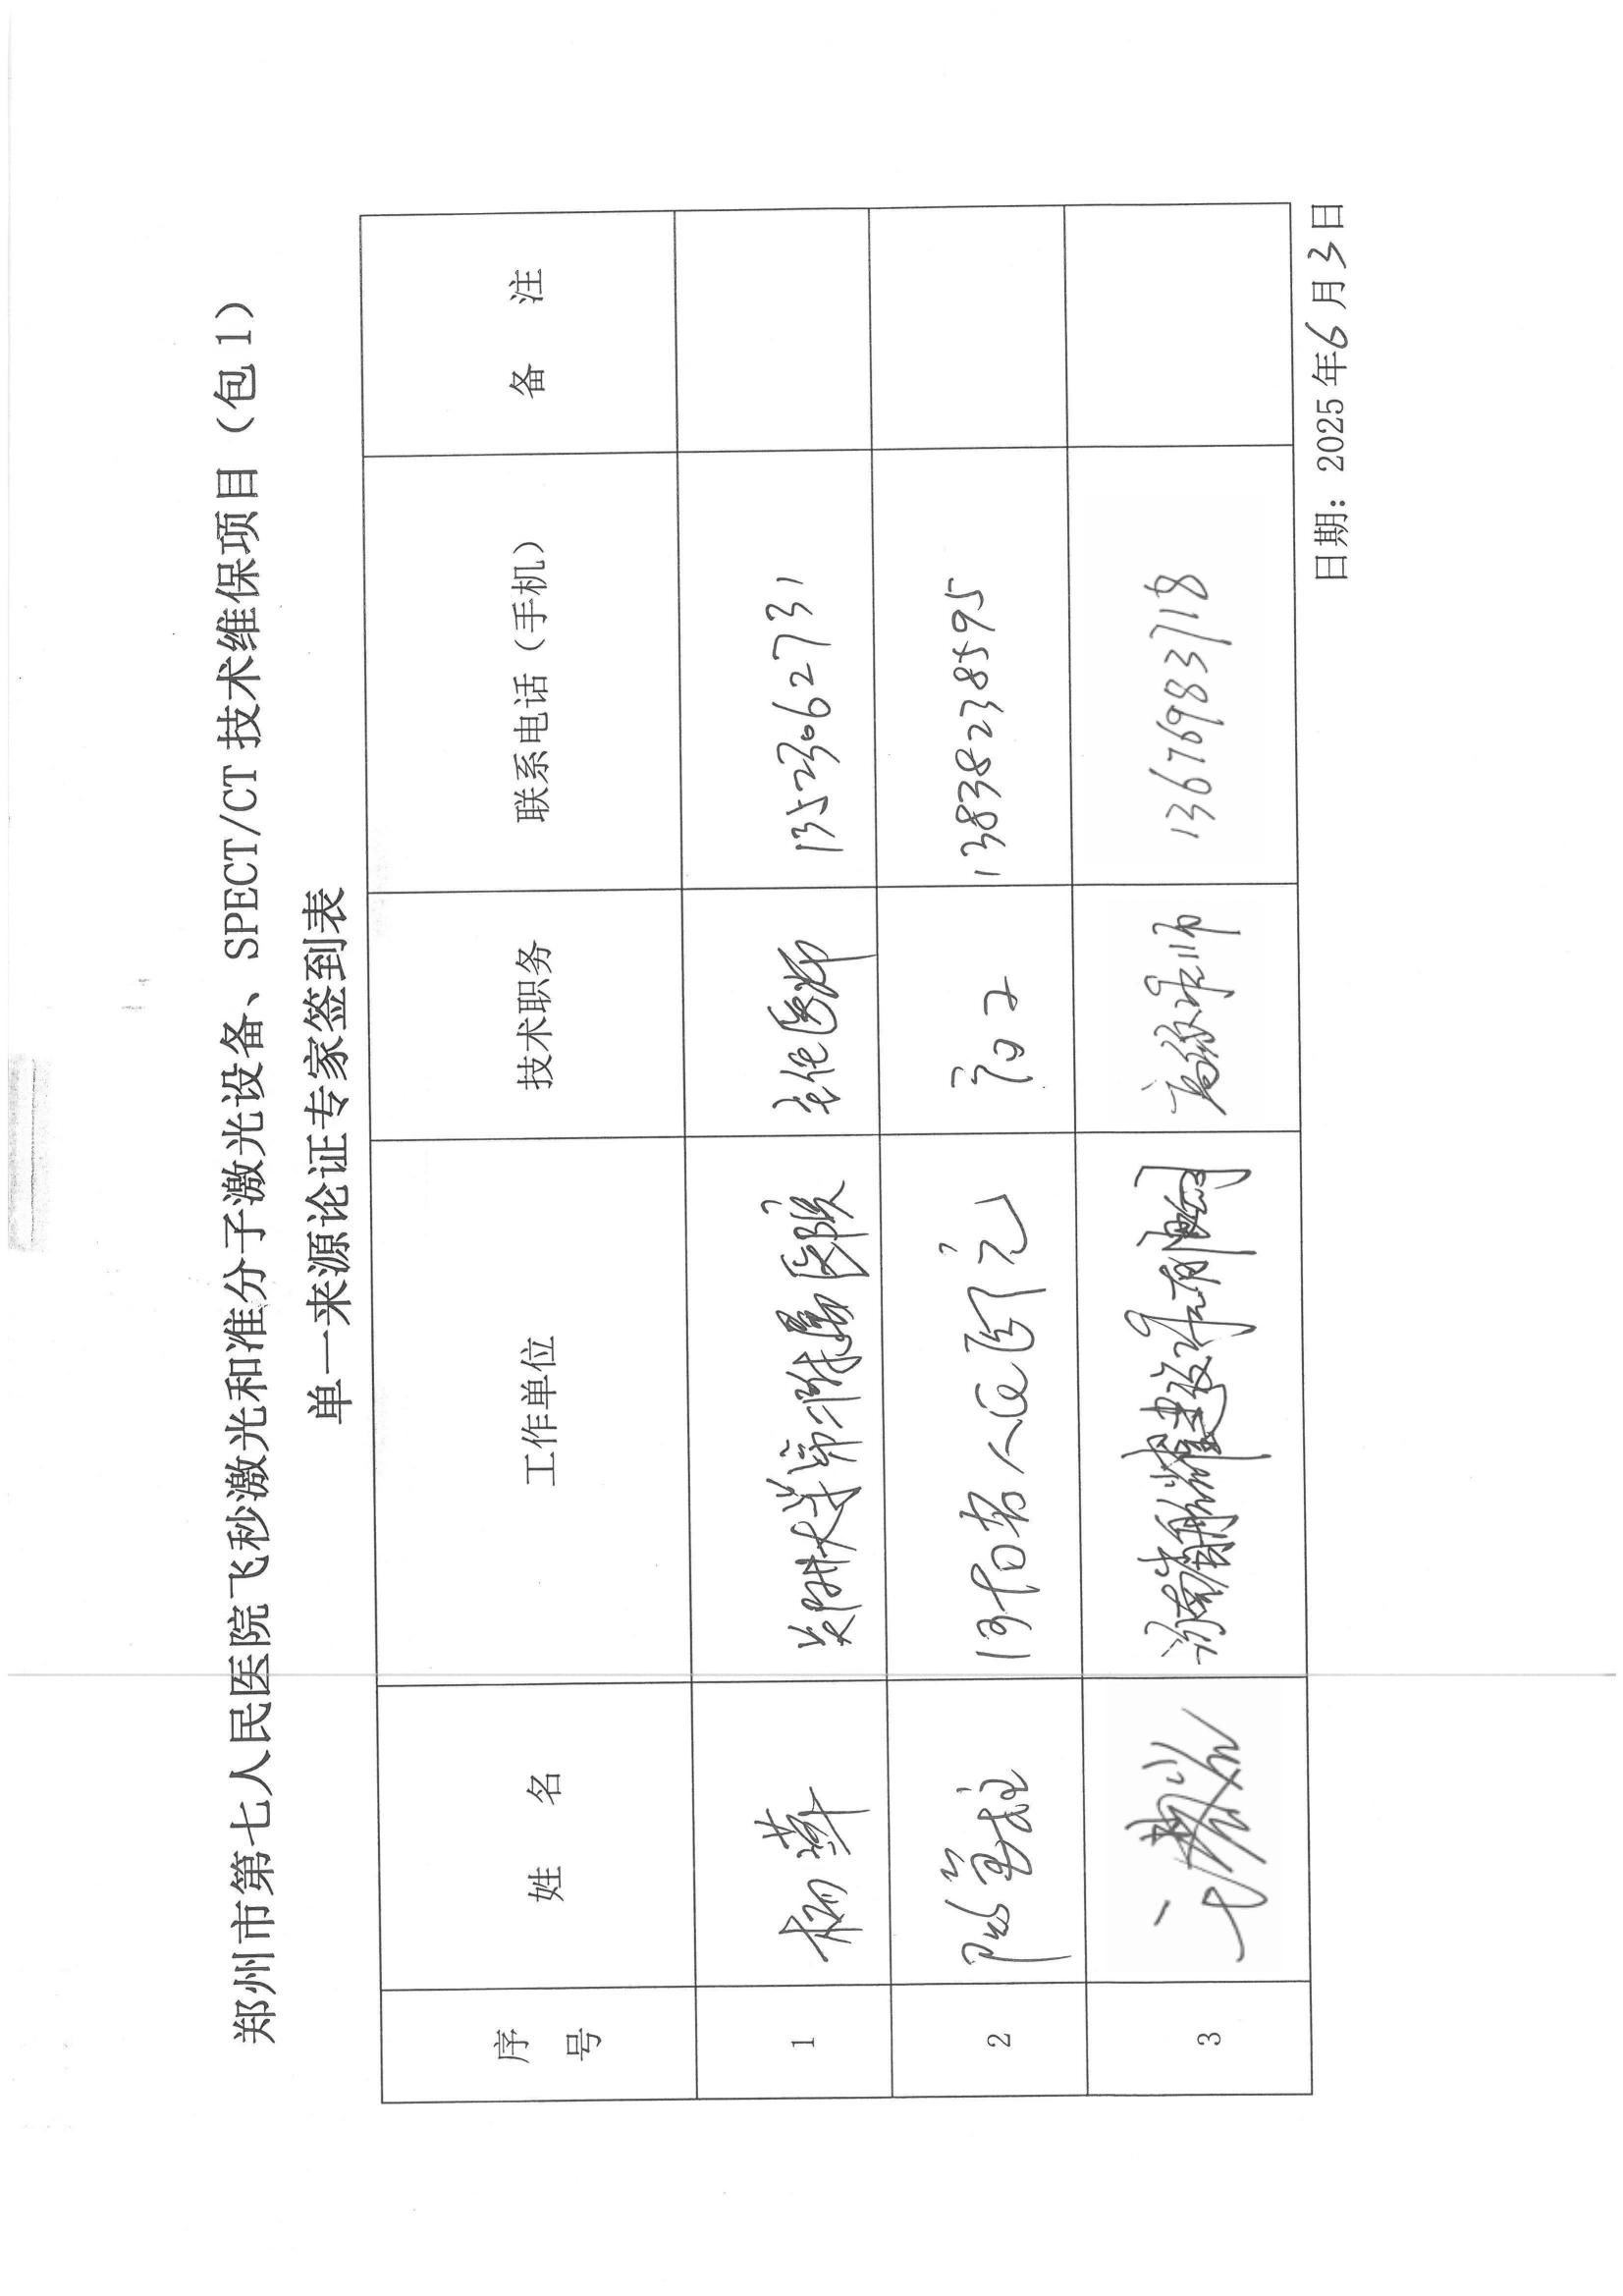 郑州市第七人民医院飞秒激光和准分子激光设备、SPECT/CT 技术维保项目（包 1）
单一来源论证专家签到表
序号 姓 名 工作单位 技术职务 联系电话（手机） 备 注
1 杨 郑州大学第一附属医院 主任医师 13523062731
2 河南省人民医院 高工 13838238595
3 河南 有限公司 高级 师 13676983718
日期：2025 年 6 月 3 日